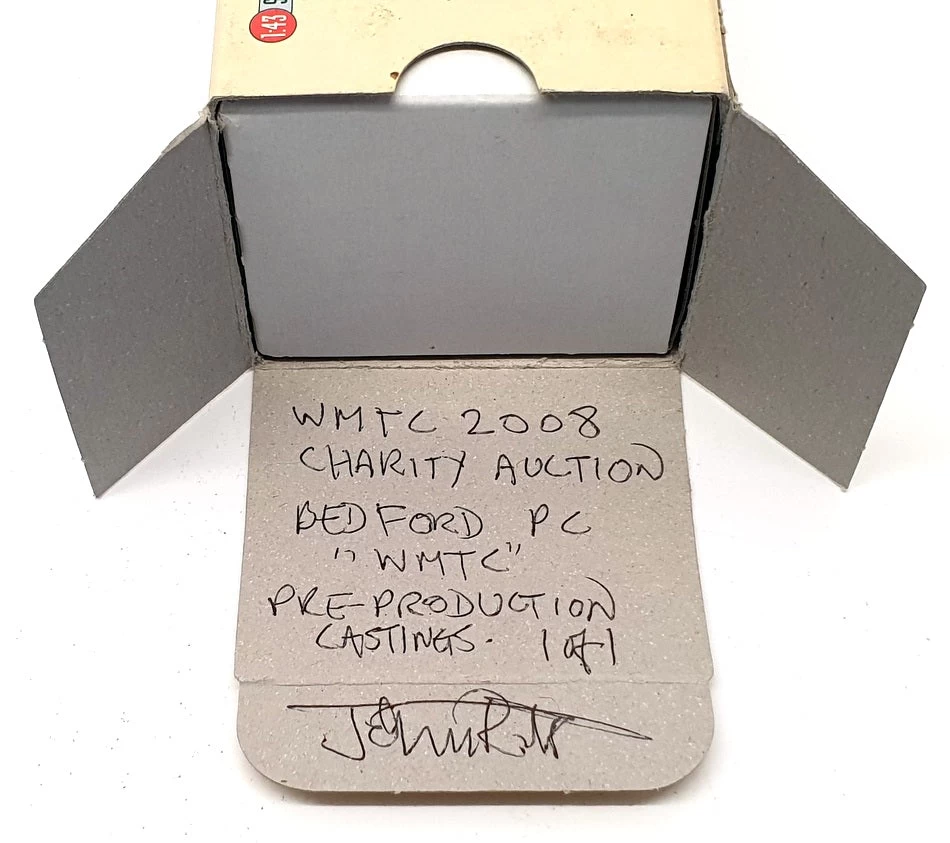 1:43
WMTC 2008
CHARITY AUCTION
BEDFORD PC
"WMTC"
PRE-PRODUCTION
CASTINGS. 1 of 1
John